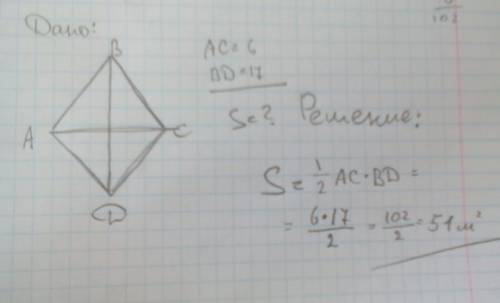 102
Дано:
B
A
C
D
AC = 6
BD = 17
S = ?
Решение:
S = 1/2 AC · BD =
= 6·17/2 = 102/2 = 51 м²